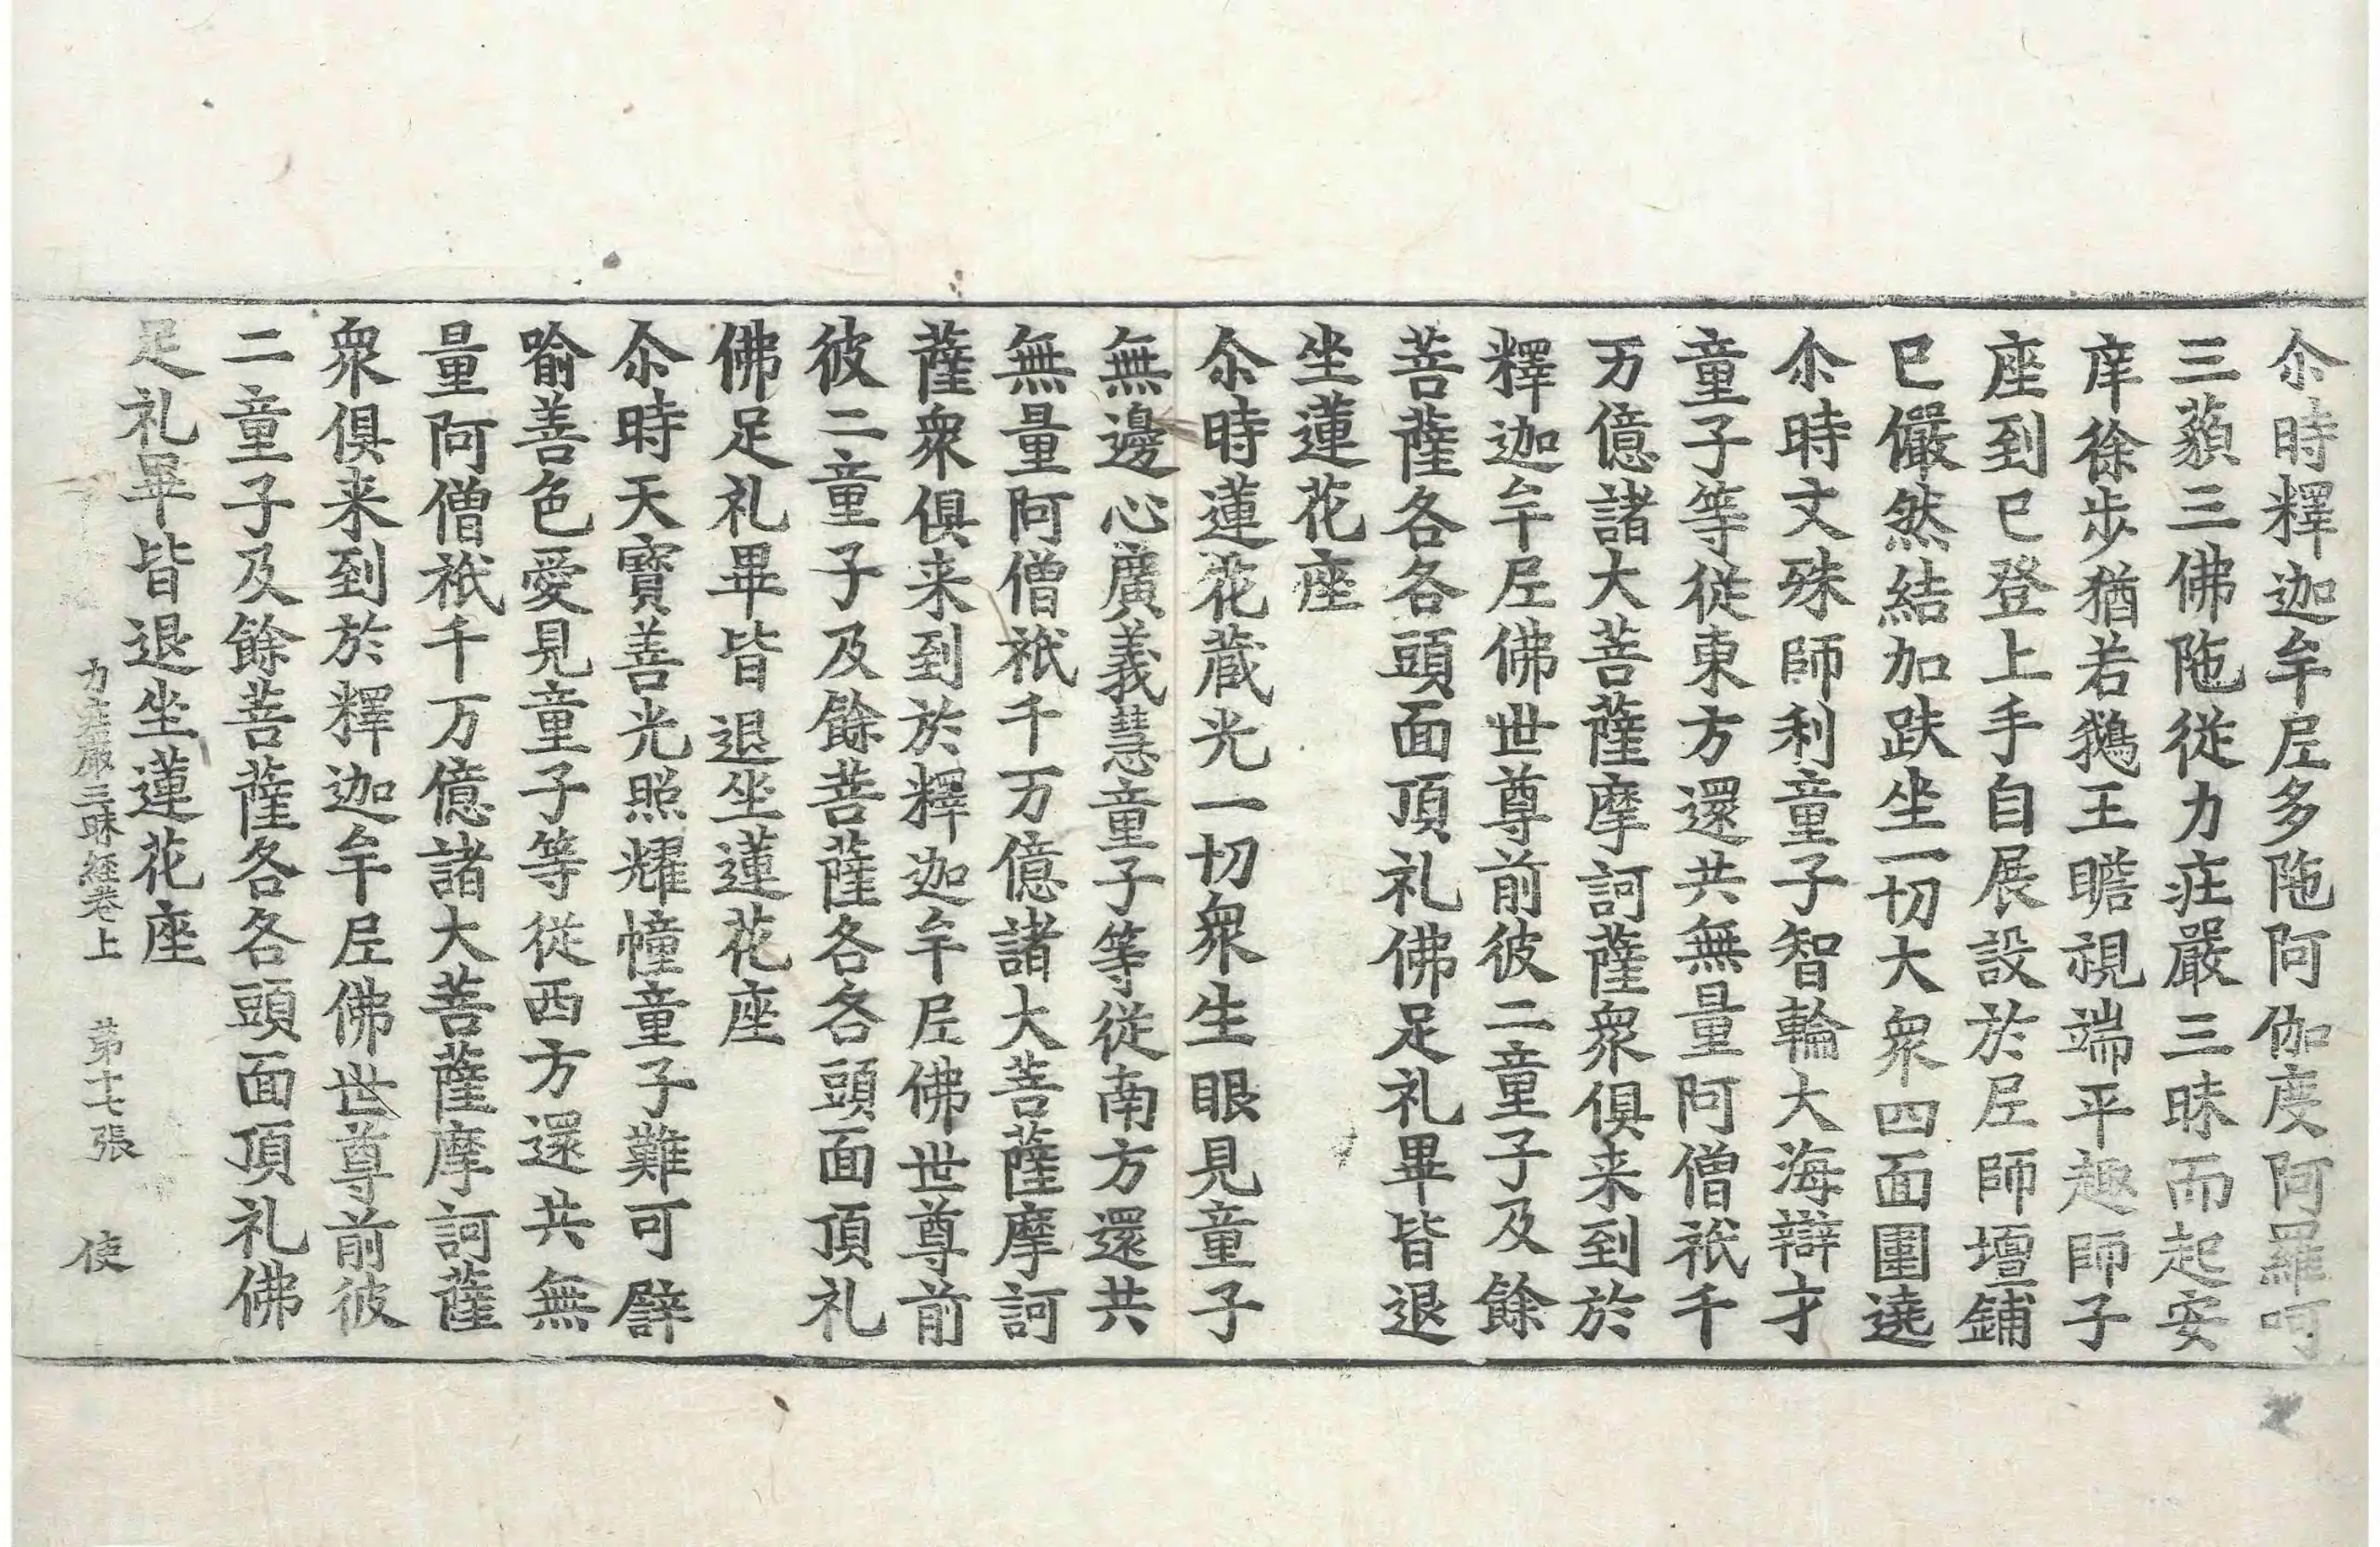 尒時釋迦牟𡰱多陁阿伽度阿羅呵
三藐三佛陁從力莊嚴三昧而起安
庠徐步猶若鵝王瞻視端平趣師子
座到已登上手自展設於𡰱師壇鋪
已儼然結加趺坐一切大衆四面圍遶
尒時文殊師利童子智輪大海辯才
童子等從東方還共無量阿僧祇千
万億諸大菩薩摩訶薩衆俱来到於
釋迦牟𡰱佛世尊前彼二童子及餘
菩薩各各頭面頂礼佛足礼畢皆退
坐蓮花座
尒時蓮花蔵光一切衆生眼見童子
無邊心廣義慧童子等從南方還共
無量阿僧祇千万億諸大菩薩摩訶
薩衆俱来到於釋迦牟𡰱佛世尊前
彼二童子及餘菩薩各各頭面頂礼
佛足礼畢皆退坐蓮花座
尒時天寶善光照耀幢童子難可譬
喻善色愛見童子等從西方還共無
量阿僧祇千万億諸大菩薩摩訶薩
衆俱来到於釋迦牟𡰱佛世尊前彼
二童子及餘菩薩各各頭面頂礼佛
足礼畢皆退坐蓮花座
力莊嚴三昧經卷上 第十七張 使